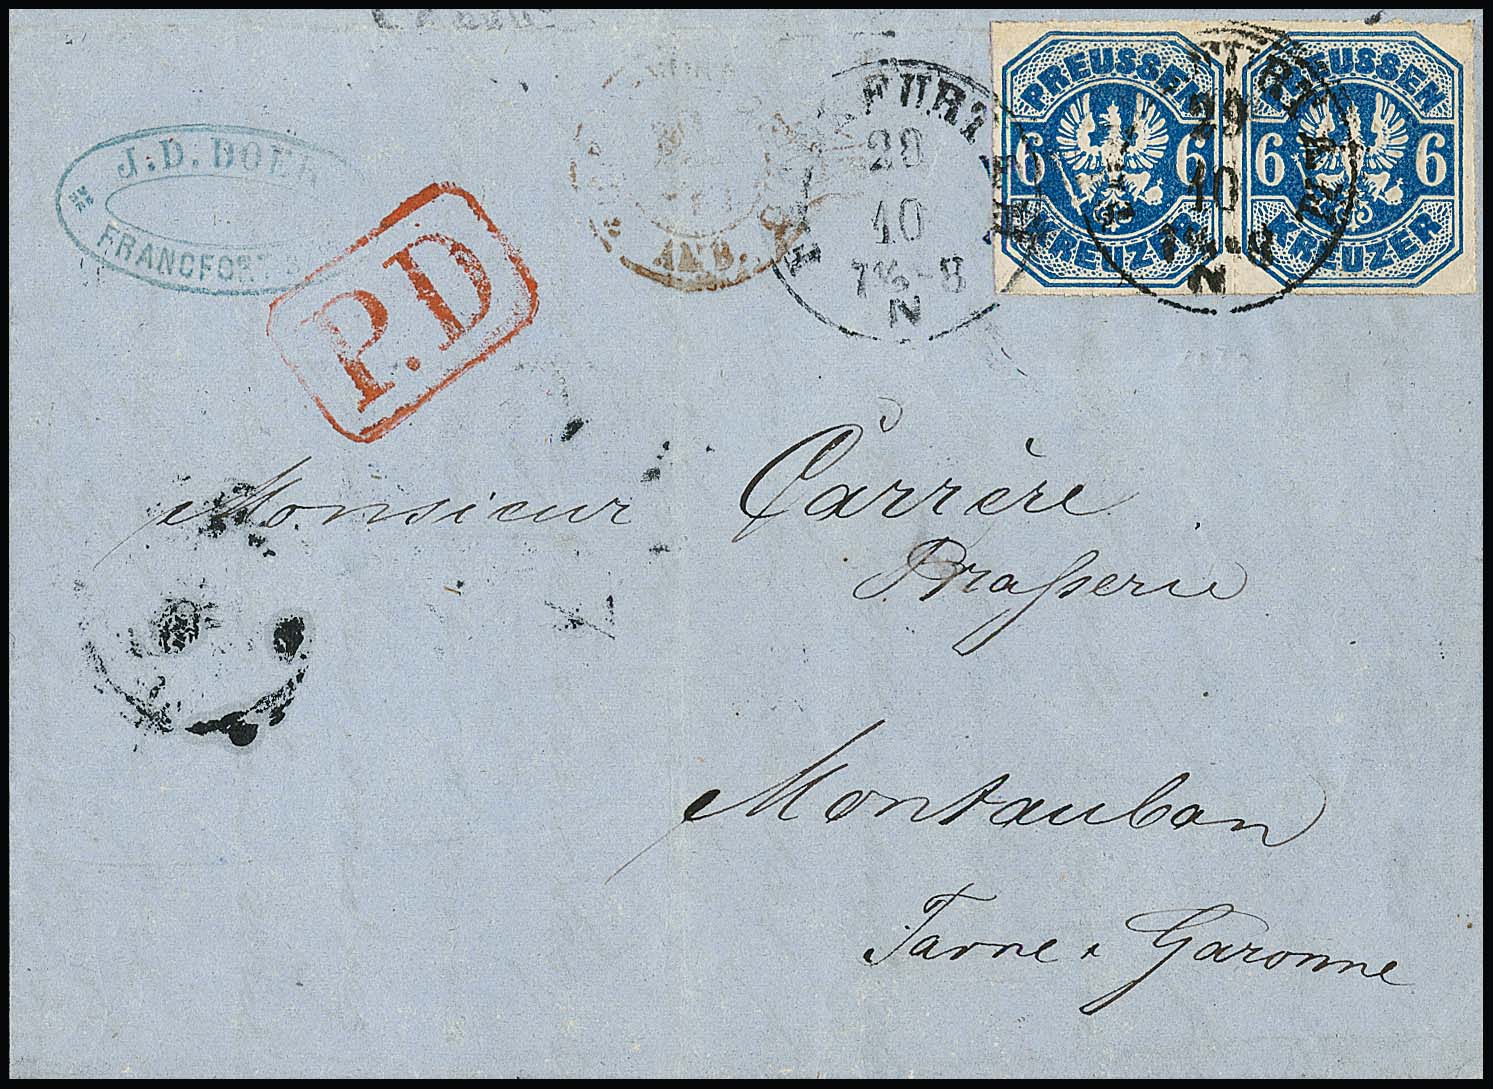 J. D.
FRANCFORT
P.D
AMB.
FURT
29
10
7½-8
N
PREUSSEN
6 6
KREUZER
PREUSSEN
6 6
KREUZER
FURT A. M.
29
10
7½-8
N
Monsieur Carrère
Brasserie
Montauban
Tarne & Garonne